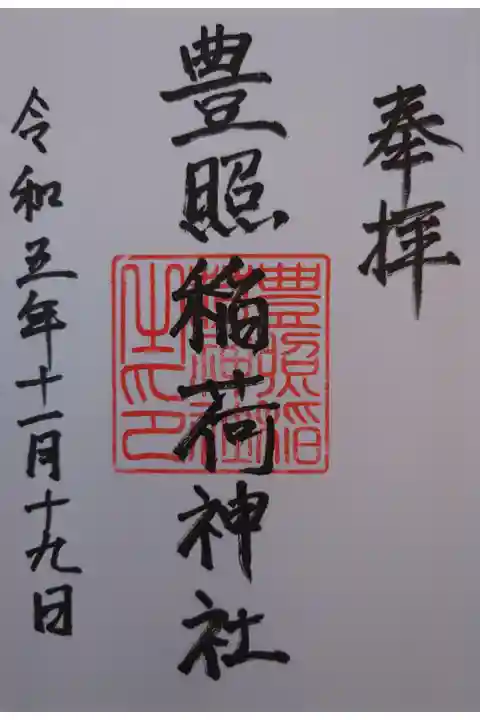 奉拝
豊照稲荷神社
豊照稲
荷神社
之印
令和五年十一月十九日